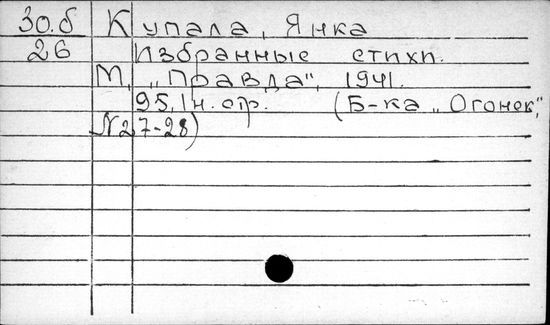 30.б Купала, Янка
26 Избранные стихи.
М, „Правда", 1941.
95,1н.стр. (Б-ка „Огонек",
N27-28)